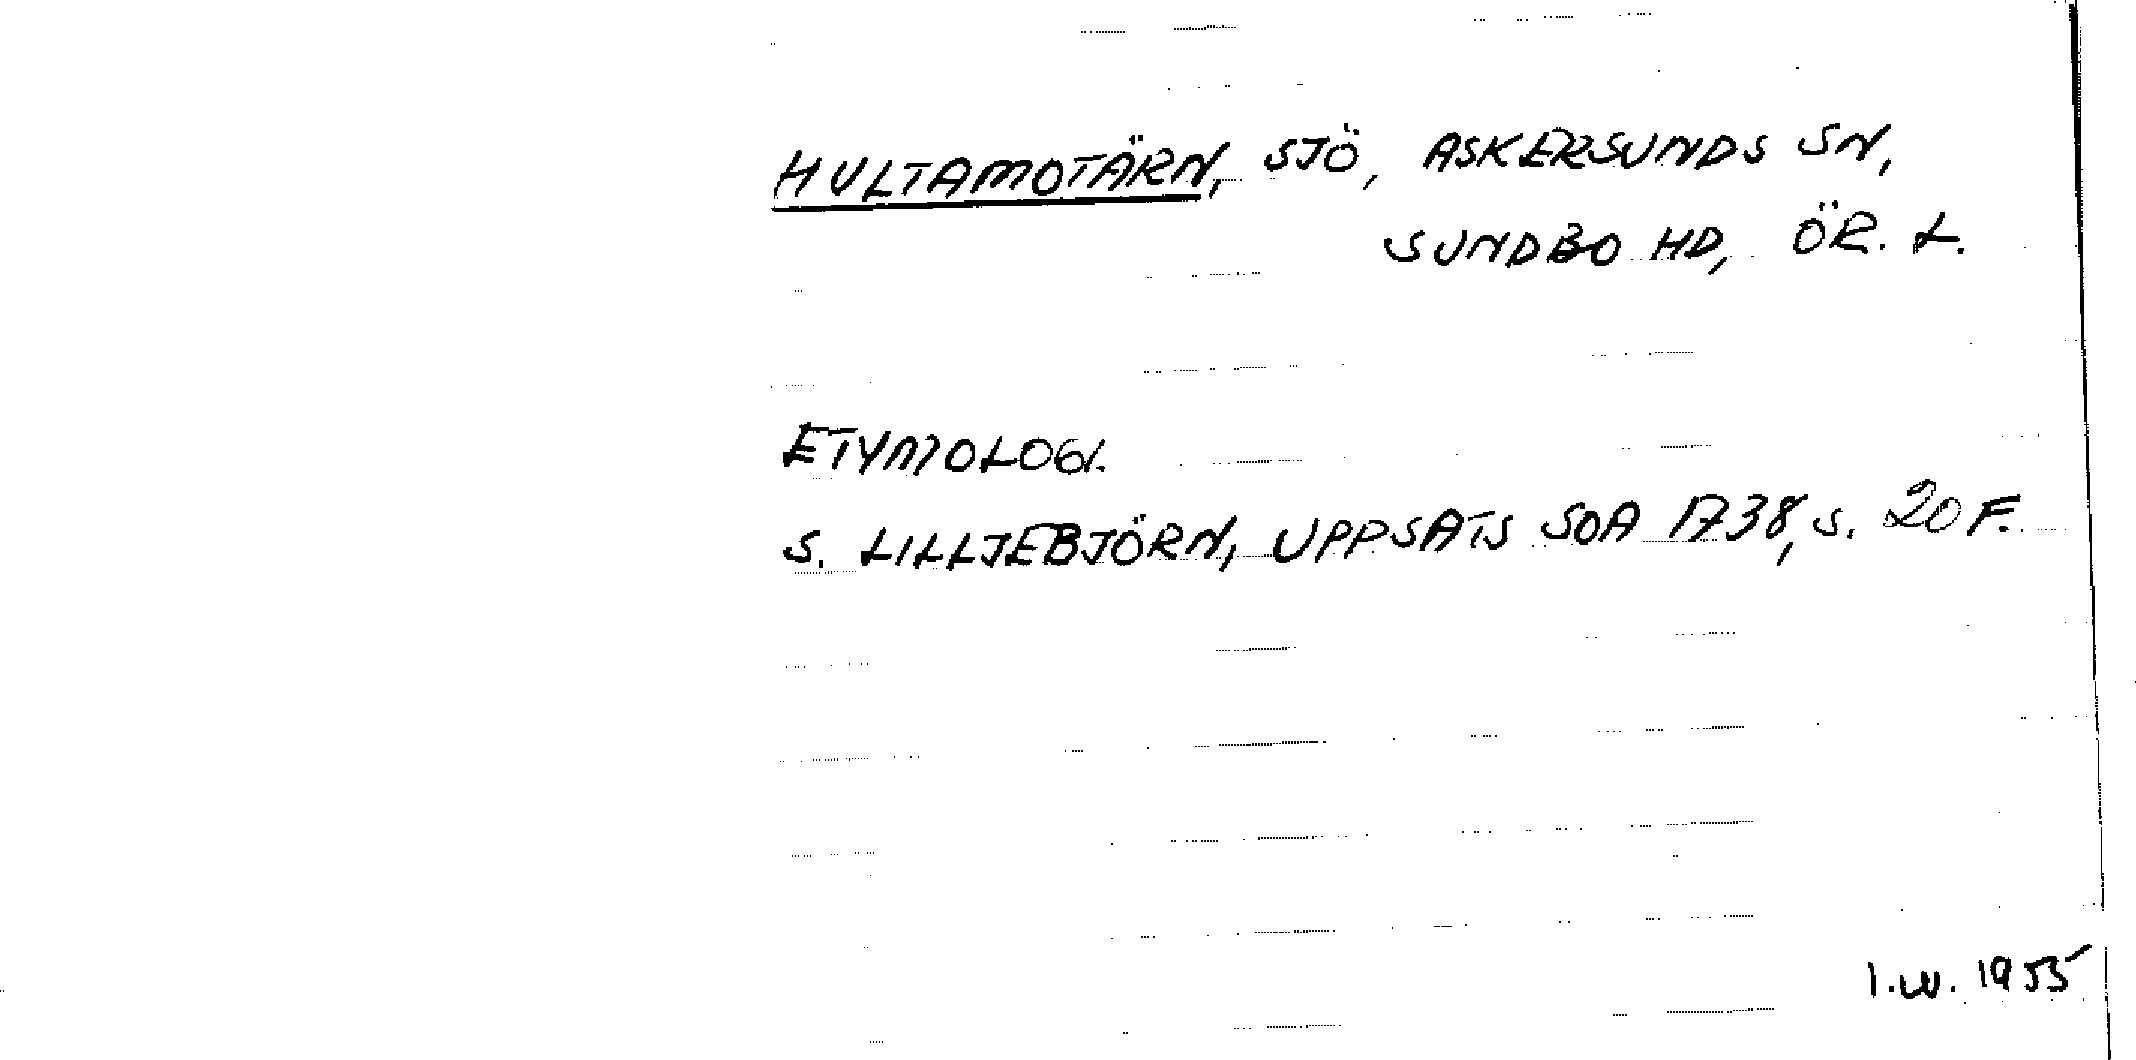 HULTAMOTÄRN, SJÖ, ASKERSUNDS SN,
SUNDBO HD, ÖR. L.
ETYMOLOGI.
S. LILLJEBJÖRN, UPPSATS SOA 1738, S. 20 F.
I.W. 1955